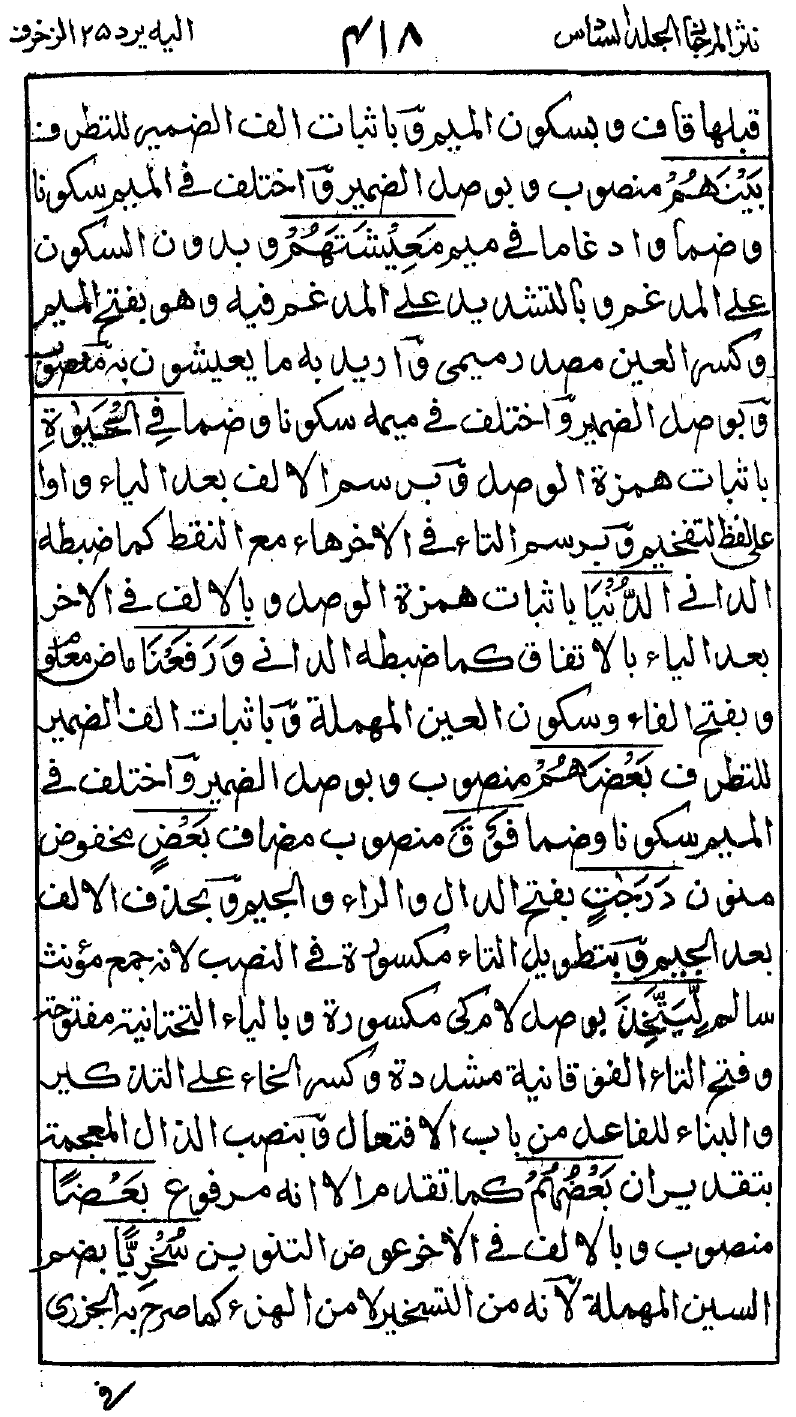 نثر المرجان المجلد السادس
۴۱۸
اليه يرد ۲۵ الزخرف
قبلها قاف و بسكون الميم وَ باثبات الف الضمير للتطرف
بَيْنَهُمْ منصوب و بوصل الضمير وَ اختلف فے الميم سكونا
و ضما و ادغاما فے ميم مَعِيْشَتَهُمْ و بدون السكون
علے المدغم و بالتشديد علے المدغم فيه و هو بفتح الميم
و كسر العين مصدر ميمى وَ اريد به ما يعيشون به منصوب
وَ بوصل الضمير وَ اختلف فے ميمه سكونا و ضما فِے الْحَيٰوةِ
باثبات همزة الوصل وَ برسم الالف بعد الياء واوا
على لفظ التفخيم وَ برسم التاء فے الاخر هاء مع النقط كما ضبطه
الدانے الدُّنْيَا باثبات همزة الوصل و بالالف فے الاخر
بعد الياء بالاتفاق كما ضبطه الدانے وَ رَفَعْنَا ماض معلوم
و بفتح الفاء و سكون العين المهملة وَ باثبات الف الضمير
للتطرف بَعْضَهُمْ منصوب و بوصل الضمير وَ اختلف فے
الميم سكونا و ضما فَوْقَ منصوب مضاف بَعْضٍ مخفوض
منون دَرَجٰتٍ بفتح الدال و الراء و الجيم وَ بحذف الالف
بعد الجيم وَ بتطويل التاء مكسورة فے النصب لانه جمع مؤنث
سالم لِّيَتَّخِذَ بوصل لام كى مكسورة و بالياء التحتانية مفتوحة
و فتح التاء الفوقانية مشددة و كسر الخاء علے التذكير
و البناء للفاعل من باب الافتعال وَ بنصب الذال المعجمة
بتقدير ان بَعْضُهُمْ كما تقدم الا انه مرفوع بَعْضًا
منصوب و بالالف فے الاخر عوض التنوين سُخْرِيًّا بضم
السين المهملة لانه من التسخير لا من الهزء كما صرح به الجزرى